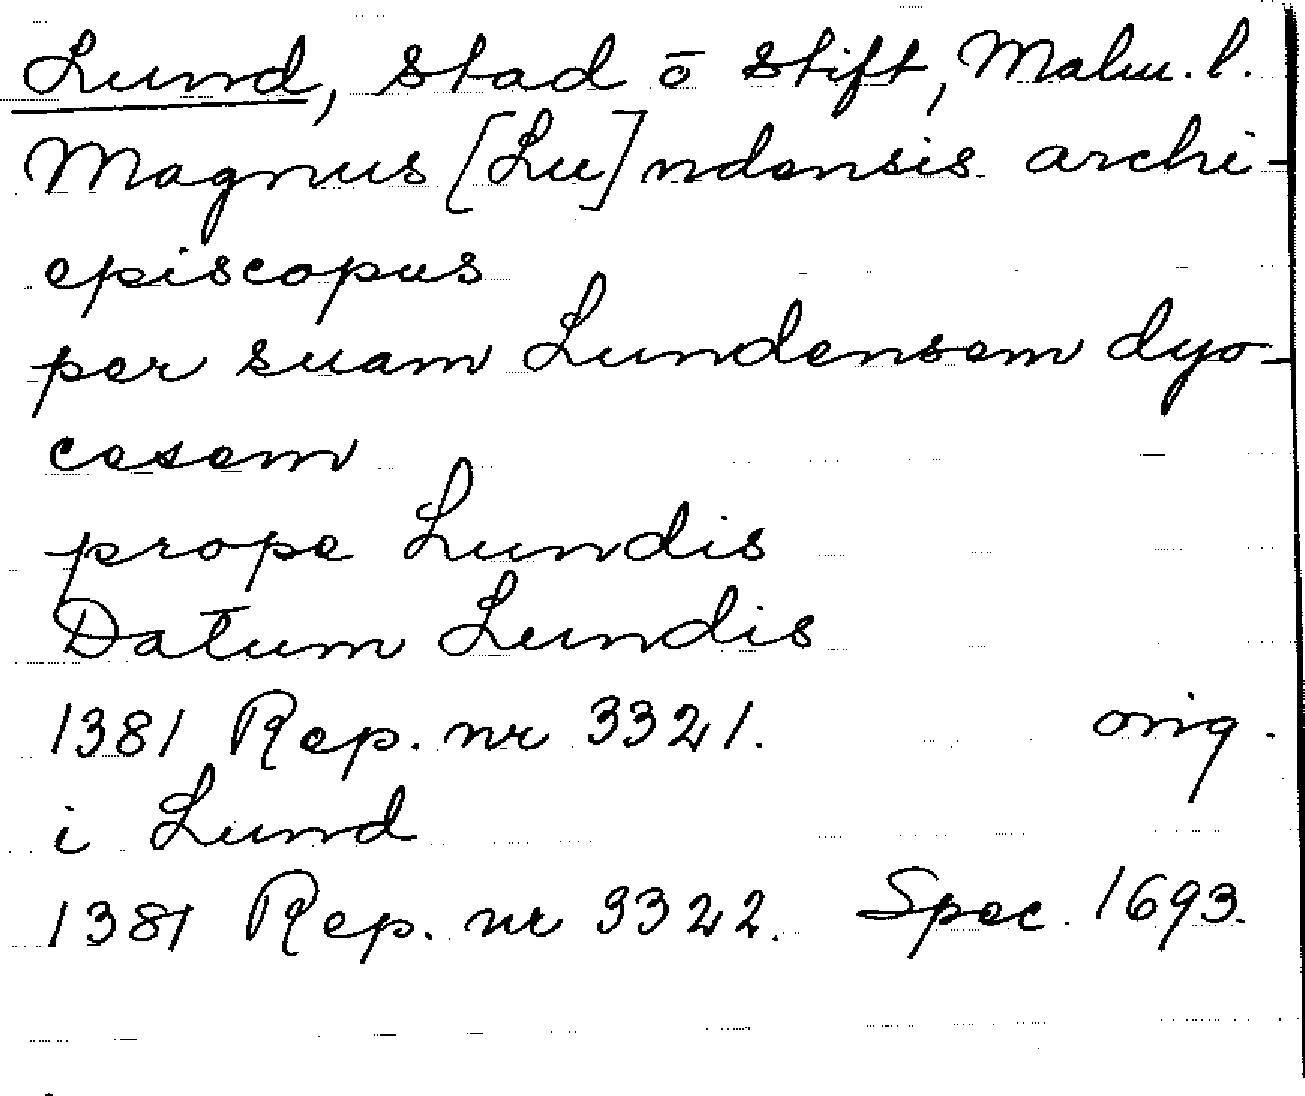 Lund, stad ō stift, Malm. l.
Magnus [Lu]ndensis archi-
episcopus
per suam Lundensem dyo-
cesem
prope Lundis
Datum Lundis
1381 Rep. nr 3321. orig.
i Lund
1381 Rep. nr 3322. Spec. 1693.